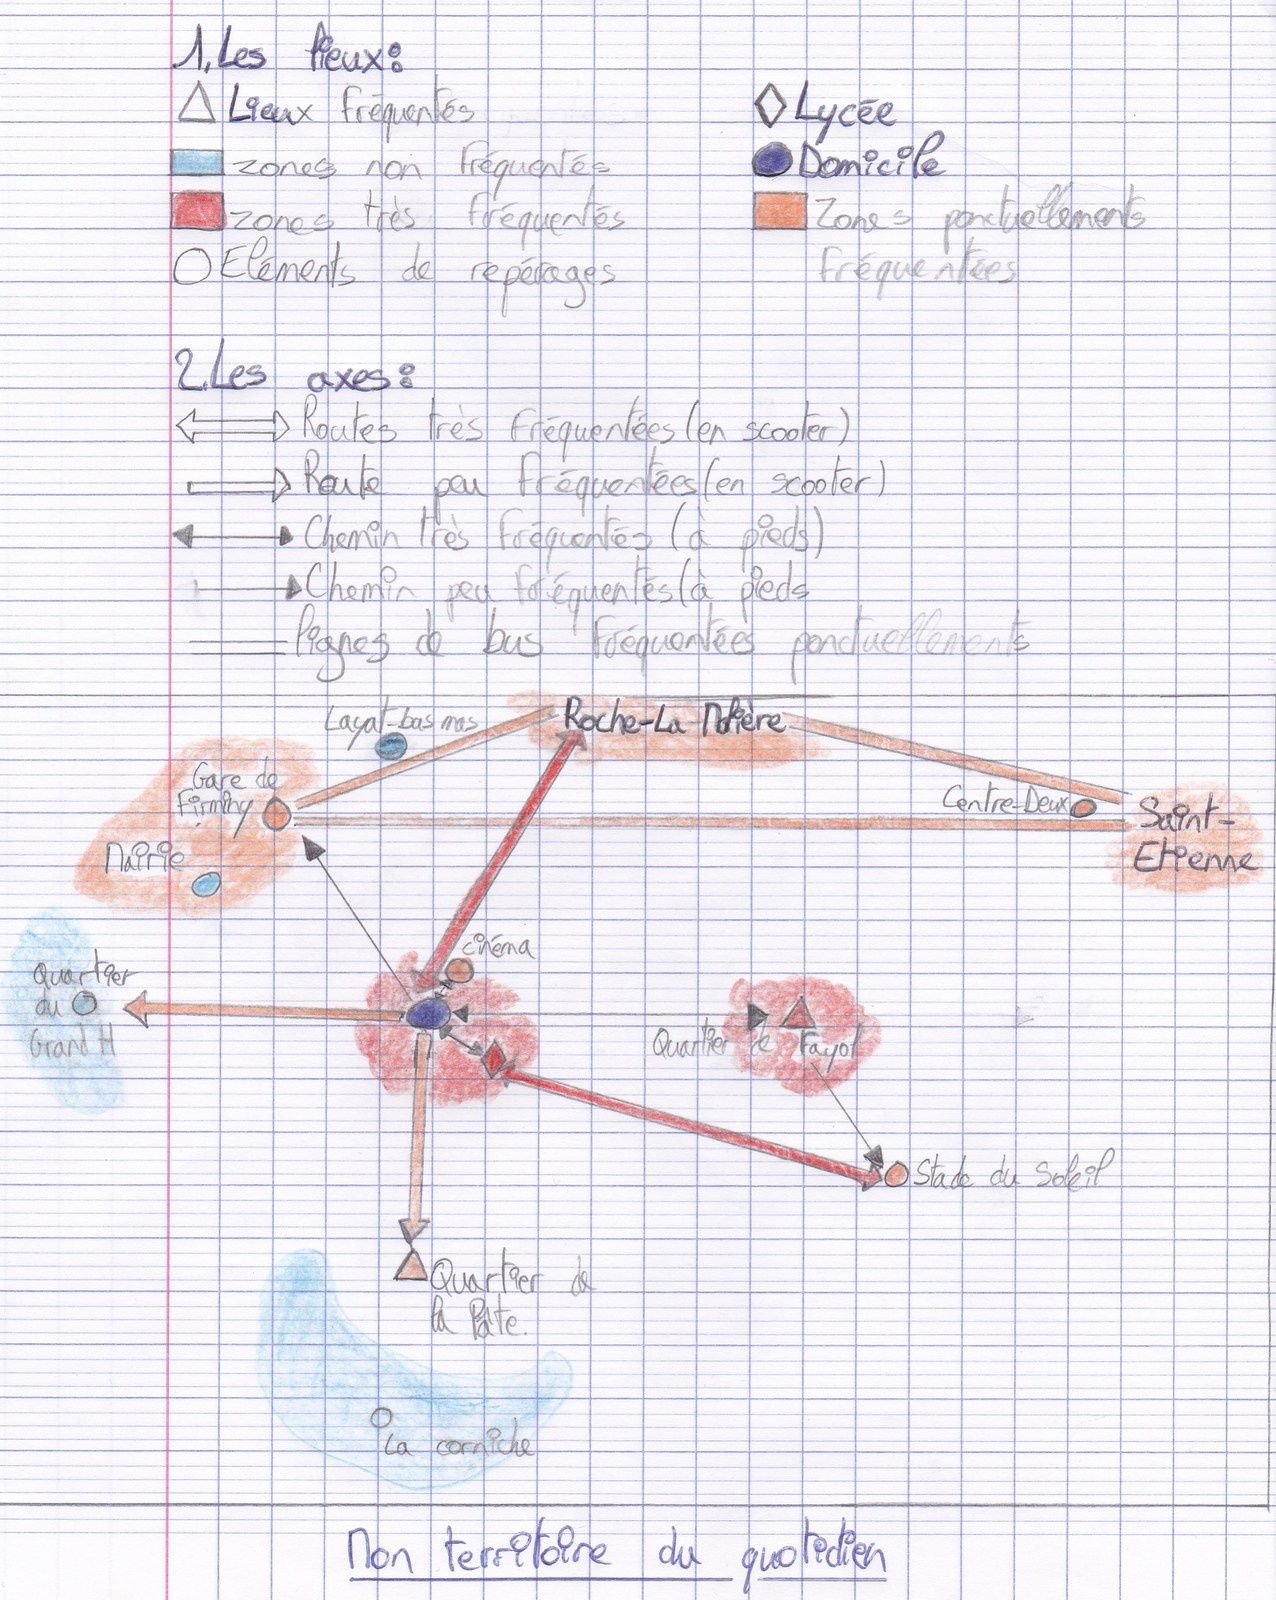 1. Les lieux:
Lieux fréquentés
Lycée
zones non fréquentés
Domicile
zones très fréquentés
Zones ponctuellements
fréquentées
Eléments de repérages
2. Les axes:
Routes très fréquentées (en scooter)
Route peu fréquentées (en scooter)
Chemin très fréquentés (à pieds)
Chemin peu fréquentés (à pieds
lignes de bus fréquentées ponctuellements
Layat-bas mas
Roche-La-Molière
Gare de
Firminy
Centre-Deux
Saint-
Etienne
Mairie
cinéma
Quartier
du
Grand H
Quartier de Fayol
Stade du Soleil
Quartier de
la Pâte.
La corniche
Mon territoire du quotidien